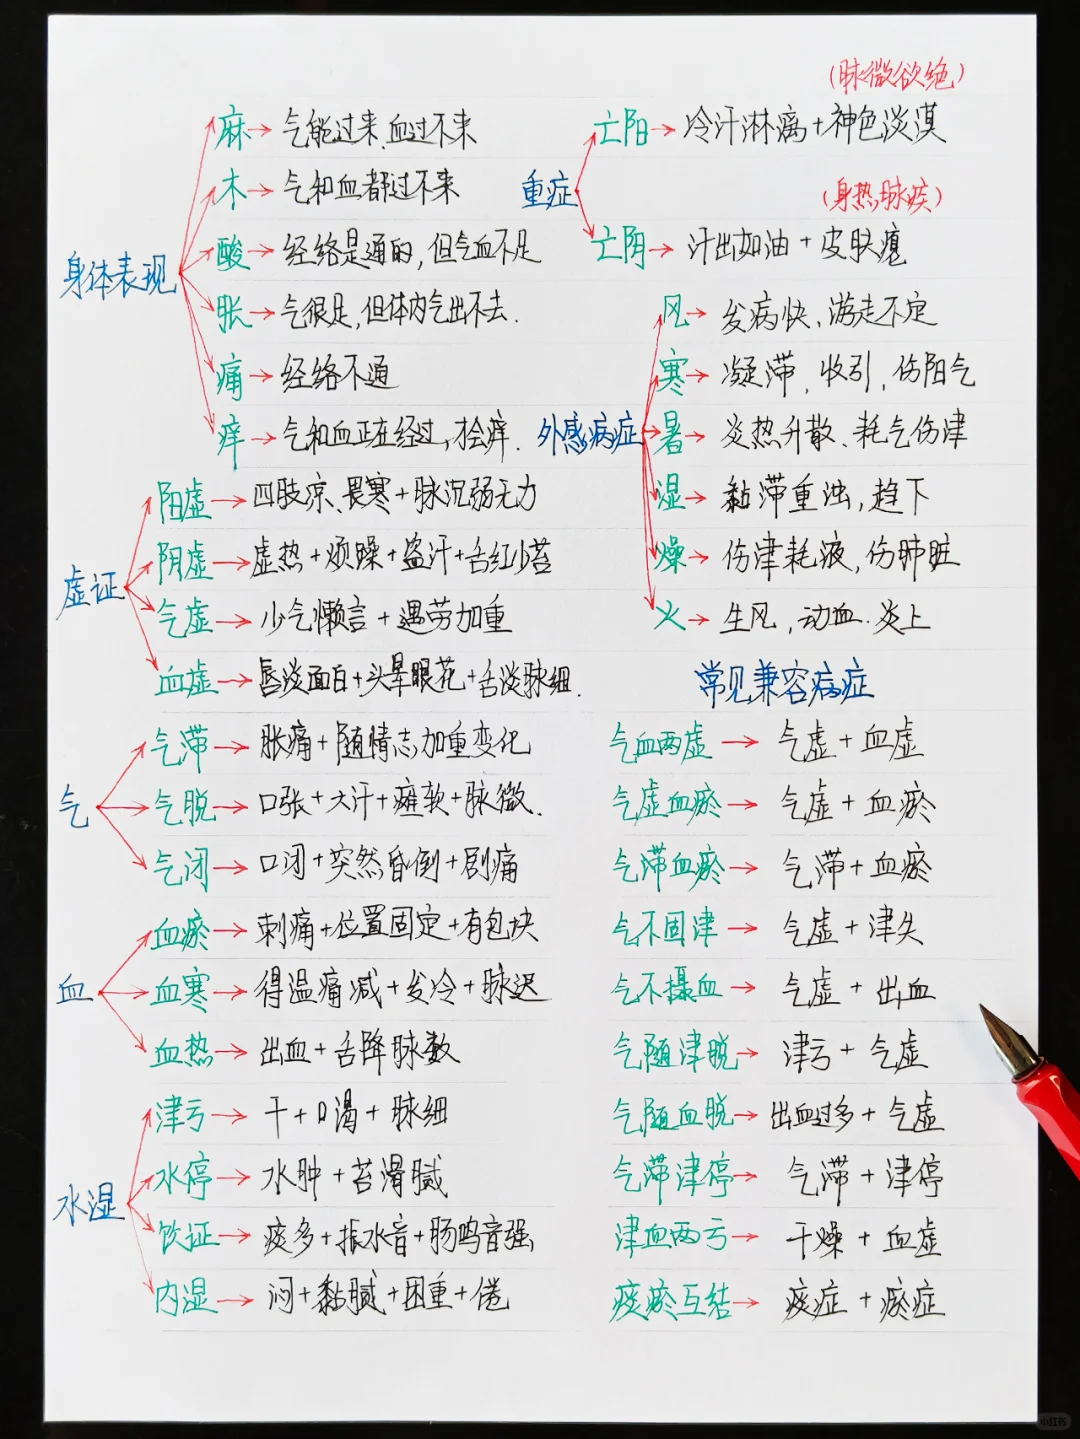 身体表现
麻→气能过来、血过不来
木→气和血都过不来
酸→经络是通的，但气血不足
胀→气很足，但体内气出不去.
痛→经络不通
痒→气和血正在经过，于痒.
虚证
阳虚→四肢凉、畏寒+脉沉弱无力
阴虚→虚热+烦躁+盗汗+舌红少苔
气虚→少气懒言+遇劳加重
血虚→唇淡面白+头晕眼花+舌淡脉细.
气
气滞→胀痛+随情志加重变化
气脱→口张+大汗+瘫软+脉微.
气闭→口闭+突然昏倒+剧痛
血
血瘀→刺痛+位置固定+有包块
血寒→得温痛减+发冷+脉迟
血热→出血+舌降脉数
水湿
津亏→干+口渴+脉细
水停→水肿+苔滑腻
饮证→痰多+振水音+肠鸣音强
内湿→闷+黏腻+困重+倦
重症
(脉微欲绝)
亡阳→冷汗淋漓+神色淡漠
(身热,脉疾)
亡阴→汗出如油+皮肤瘪
外感病症
风→发病快、游走不定
寒→凝滞，收引，伤阳气
暑→炎热升散、耗气伤津
湿→黏滞重浊，趋下
燥→伤津耗液，伤肺脏
火→生风，动血.炎上
常见兼容病症
气血两虚→气虚+血虚
气虚血瘀→气虚+血瘀
气滞血瘀→气滞+血瘀
气不固津→气虚+津失
气不摄血→气虚+出血
气随津脱→津亏+气虚
气随血脱→出血过多+气虚
气滞津停→气滞+津停
津血两亏→干燥+血虚
痰瘀互结→痰症+瘀症
小红书